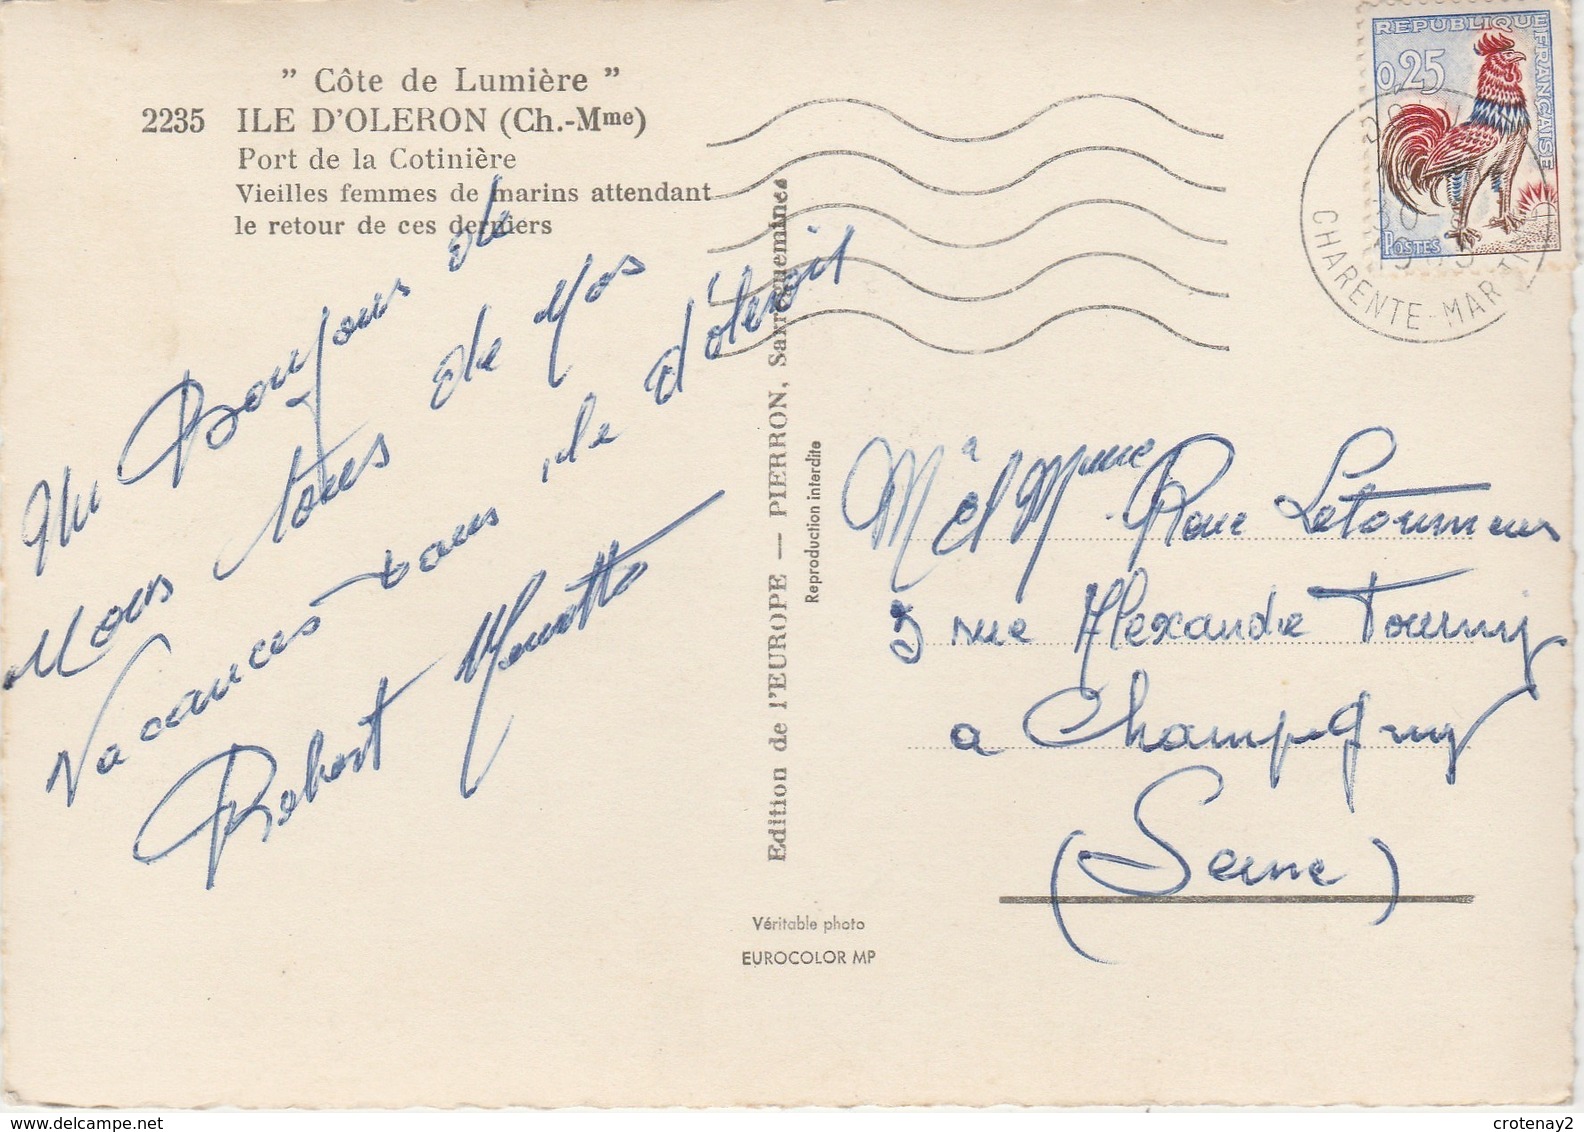 " Côte de Lumière "
2235 ILE D'OLERON (Ch.-Mme)
Port de la Cotinière
Vieilles femmes de marins attendant
le retour de ces derniers
Un Bonjour de
Nous tous de Nos
Vacances dans ile d'óleroil
Robert
Edition de l'EUROPE — PIERRON, Sarreguemines
Reproduction interdite
Véritable photo
EUROCOLOR MP
REPUBLIQUE FRANÇAISE
0,25
POSTES
CHARENTE-MARITIME
Mr et Mme Letourneur
5 rue Alexandre Fourny
a Champigny
(Seine)
delcampe.net
crotenay2